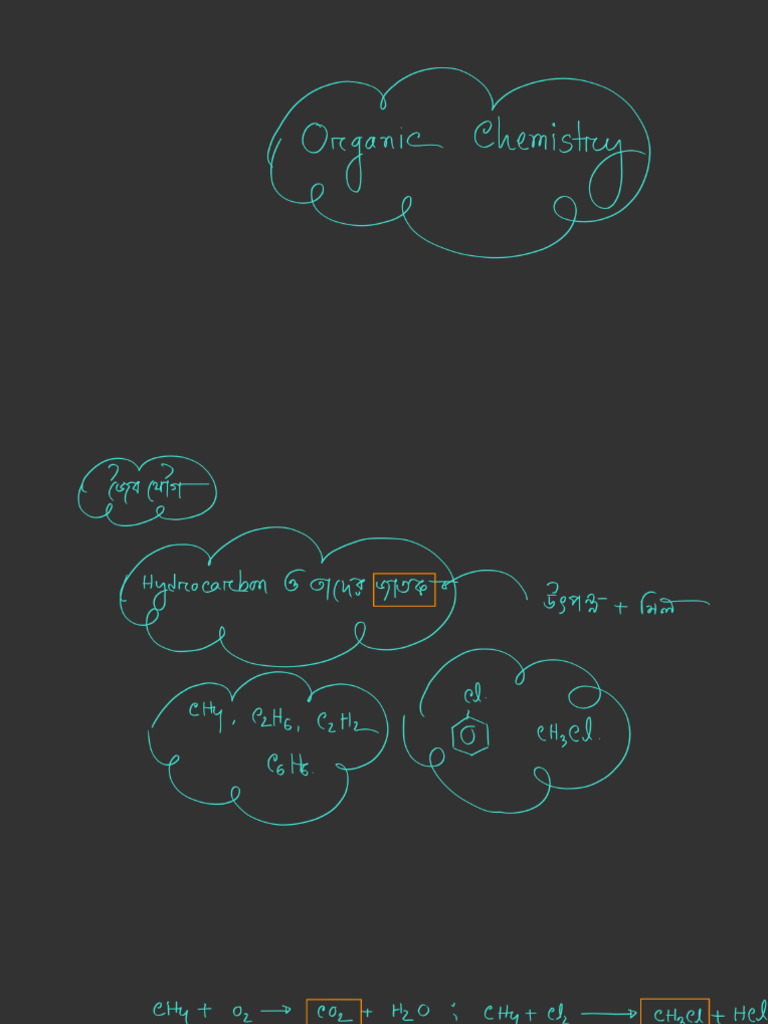 Organic Chemistry
জৈব যৌগ
Hydrocarbon ও তাদের জাতক
উৎপন্ন + মিল
CH4, C2H6, C2H2
C6H6.
Cl
CH3Cl.
CH4 + O2 → CO2 + H2O ; CH4 + Cl2 → CH3Cl + HCl